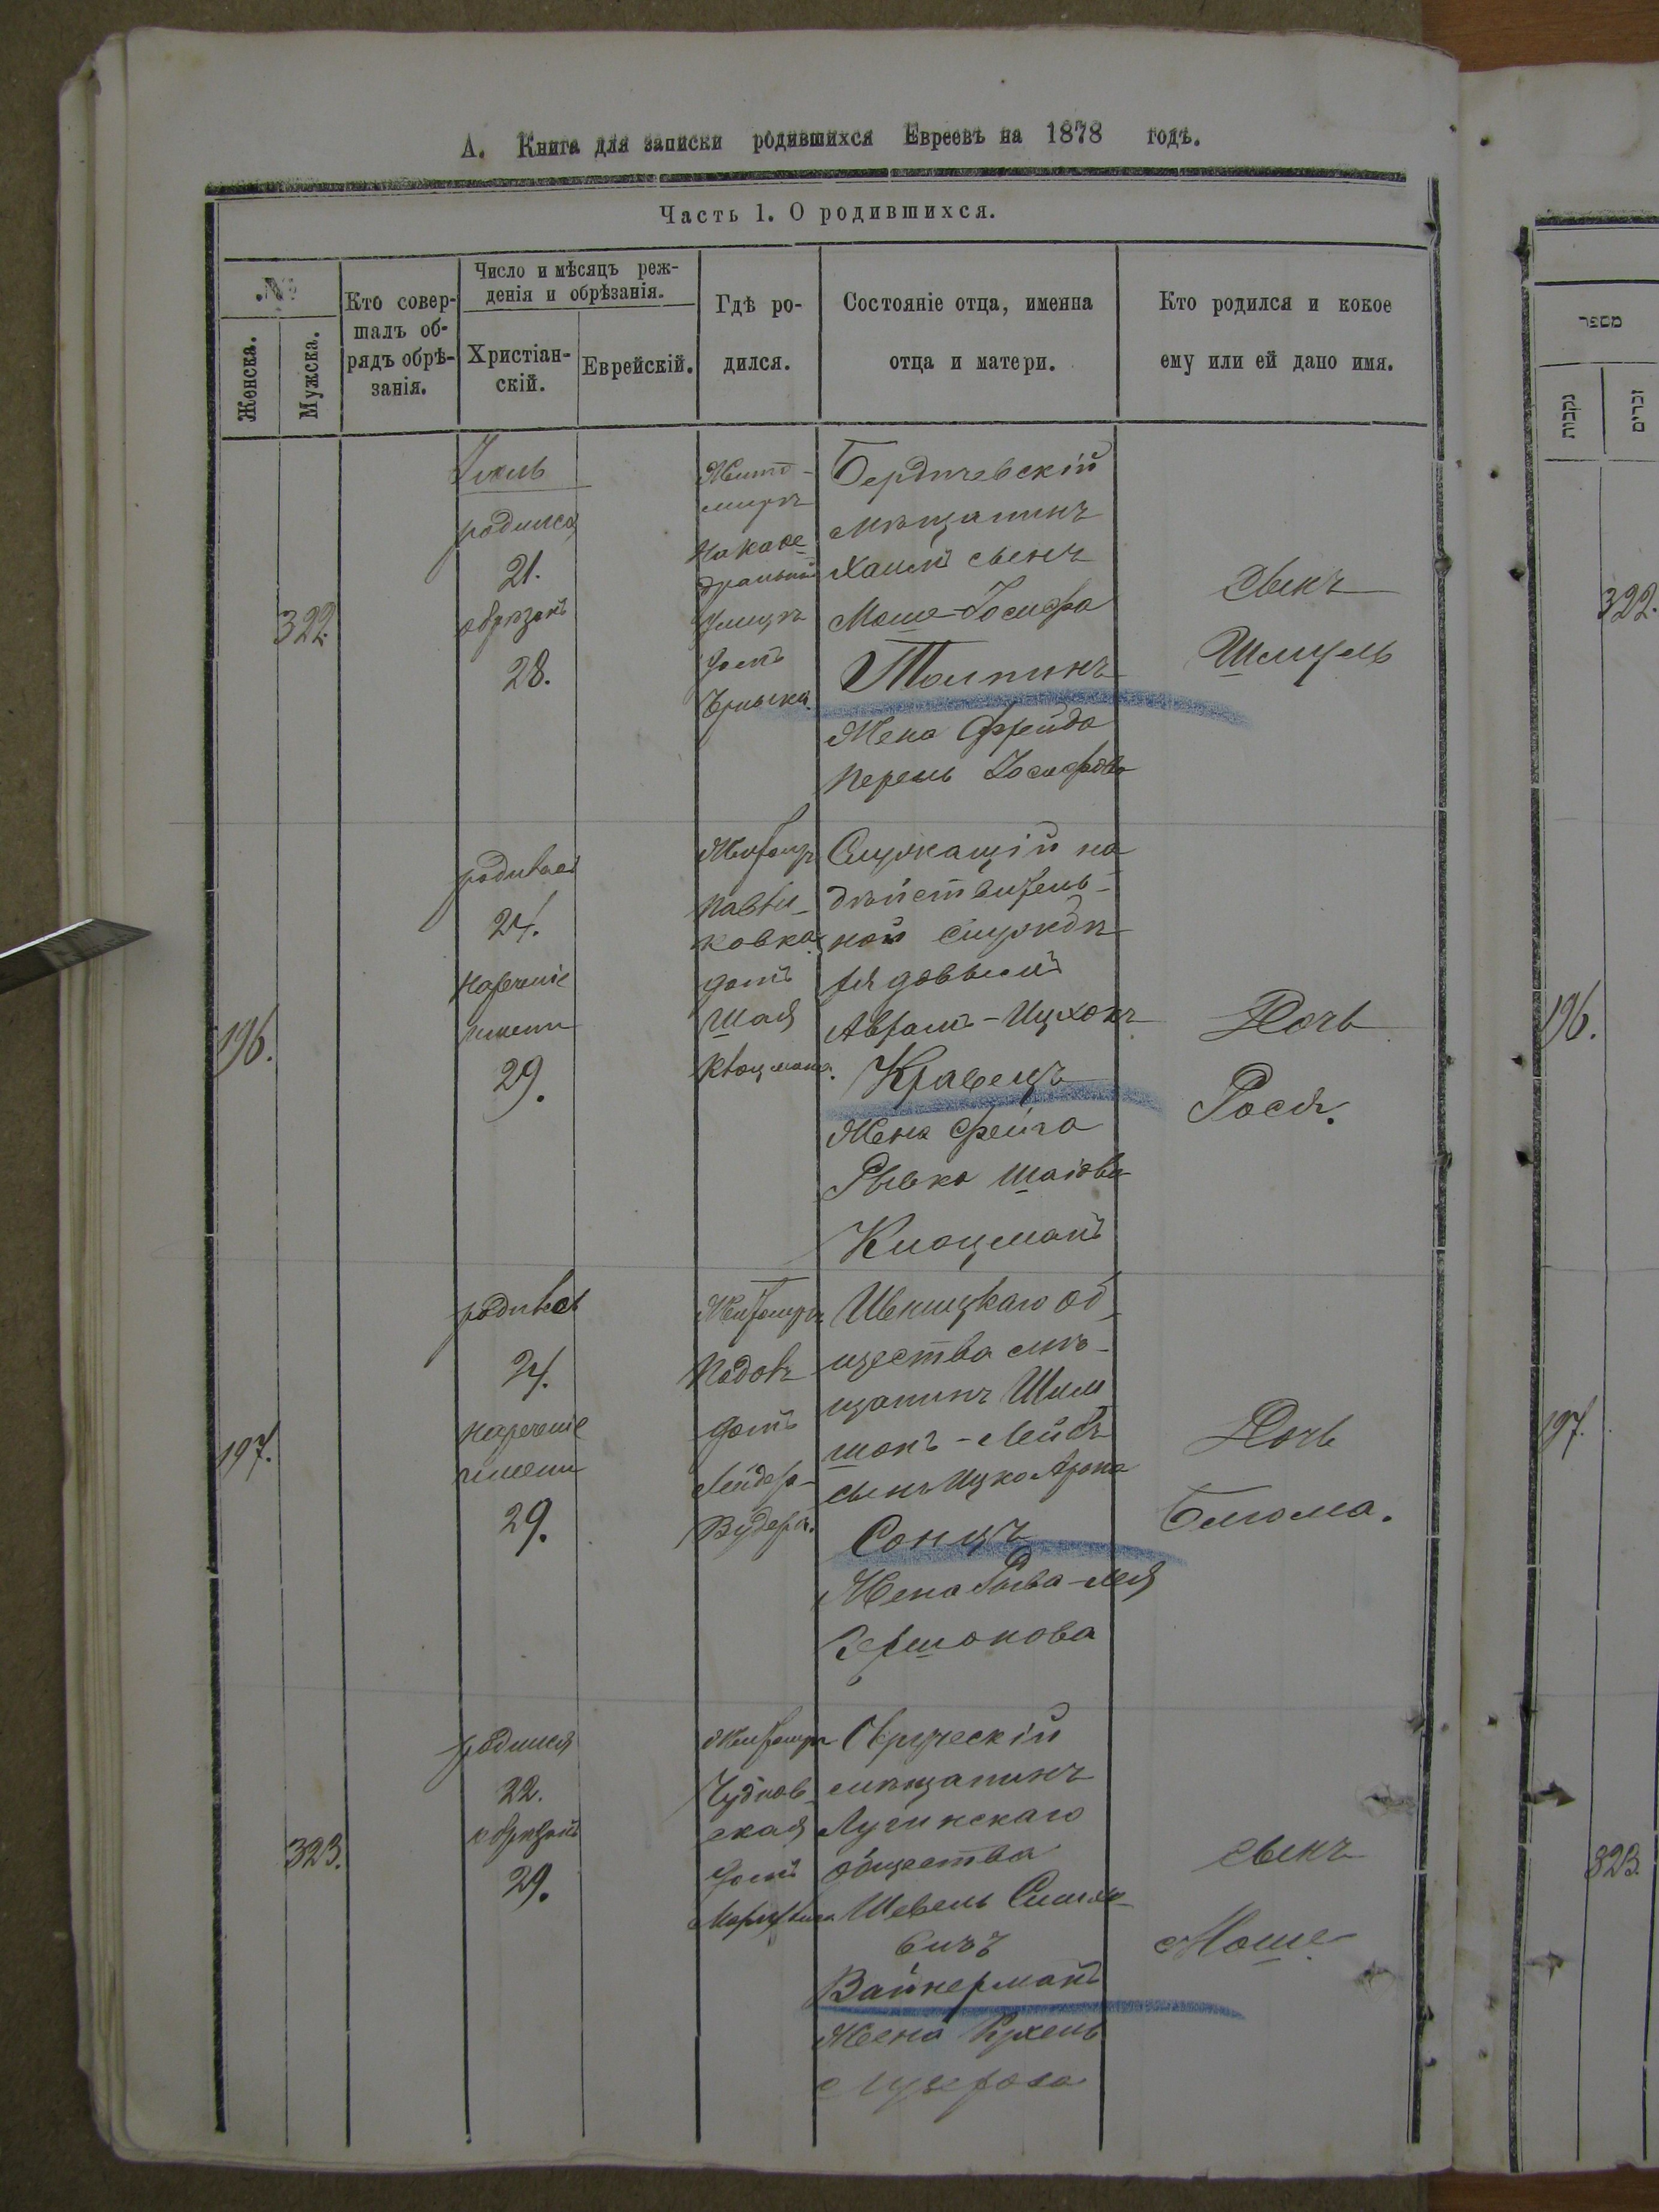 А. Книга для записки родившихся Евреевъ на 1878 годъ.
Часть 1. О родившихся.
№
Женска.
Мужска.
Кто совер-
шалъ об-
рядъ обрѣ-
занія.
Число и мѣсяцъ реж-
денія и обрѣзанія.
Христіан-
скій.
Еврейскій.
Гдѣ ро-
дился.
Состояніе отца, именна
отца и матери.
Кто родился и кокое
ему или ей дано имя.
322.
родился
21.
обрѣзанъ
28.
Жито-
миръ
На Каѳе-
дральной
улицѣ
домъ
Бердичевскій
мѣщанинъ
Хаимъ сынъ
Моше-Іосифа
Толпинъ
Жена Фрейда
Перель Іосифова
Сынъ
Шмуль
196.
родилась
24.
Нареченіе
имени
29.
Житомиръ
Павли-
ковка
домъ
Шая
Клоцмана.
Служащій на
дѣйствитель-
ной службѣ
рядовымъ
Аврамъ-Ицхокъ
Кравецъ
Жена Фейга
Рывка Шаіова
Клоцманъ
Дочь
Рося.
197.
родилась
24.
нареченіе
имени
29.
Житомиръ
Подолъ
домъ
Ивницкаго об-
щества мѣ-
щанинъ Шим
шонъ-Лейбъ
сынъ Ицко Арона
Сонцъ
Жена Рыва-Лея
Гершонова
Дочь
Блюма.
323.
родился
22.
обрѣзанъ
29.
Житомиръ
Чуднов-
ская
домъ
Овручскій
мѣщанинъ
Лугинскаго
общества
Шевель Симхо-
вичъ
Вайнерманъ
Жена Рухель
сынъ
Моше
מספר
נקבות
זכרים
322.
196.
197.
323.